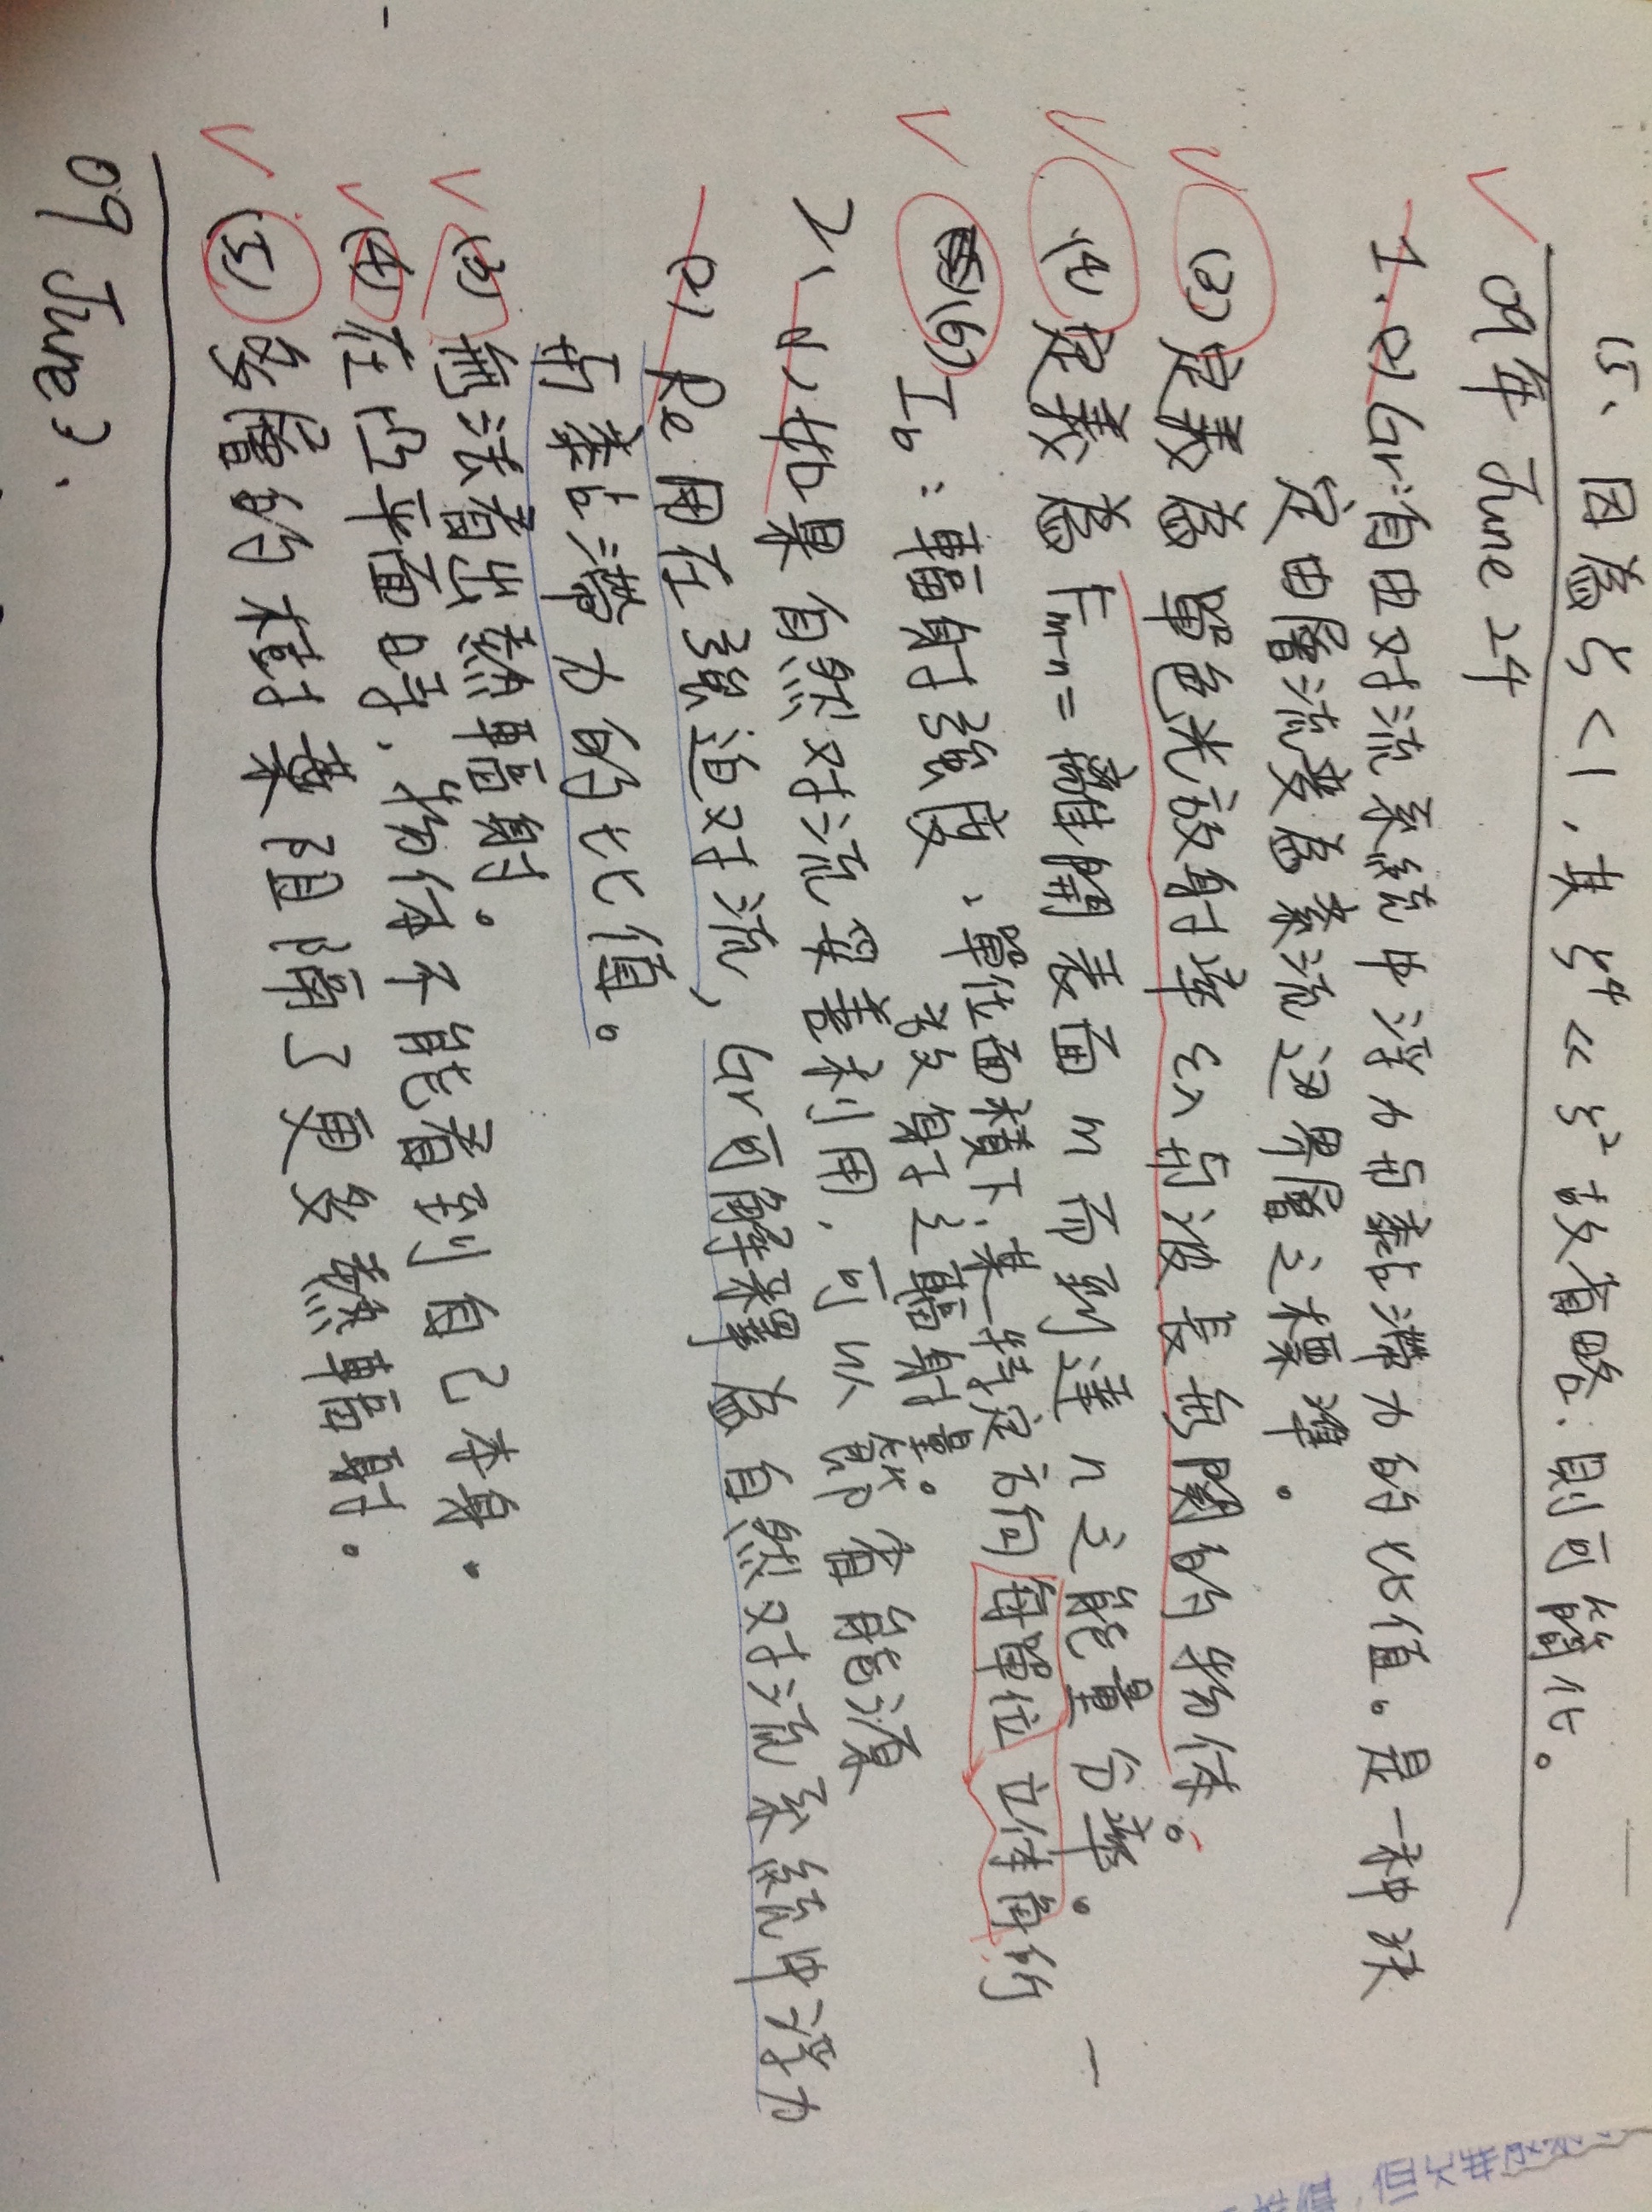 15、因為ξ<1,其ξ⁴<<ξ²故省略:則可簡化。
09年 June 24
1、(2) Gr:自由对流系統中浮力与黏滯力的比值。是一种決
定由層流变為紊流边界層之標準。
(3) 定義為 單色光放射率 ελ 与波長無関的物体。
(4) 定義為 Fm-n = 離開表面 m 而到達 n 之能量分率。
(6) Ib:輻射強度、單位面積下,某一特定方向每單位立体角的
放射之輻射量。
2、(1) 如果自然对流妥善利用,可以節省能源
(2) Re 用在強迫对流,Gr可解釋為自然对流系統中浮力
与黏滯力的比值。
(3) 無法看出熱輻射。
(4) 在凸平面時,物体不能看到自己本身.
(5) 多層的材料來阻隔了更多熱輻射。
09 June 3.